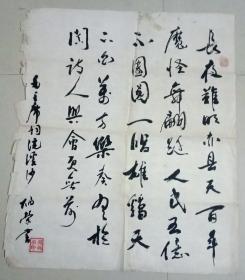 長夜難明赤县天百年
魔怪舞翩跹人民五億
不團圓一唱雄鷄天
下白萬方樂奏有於
闐詩人興會更無前
毛主席詞浣溪沙